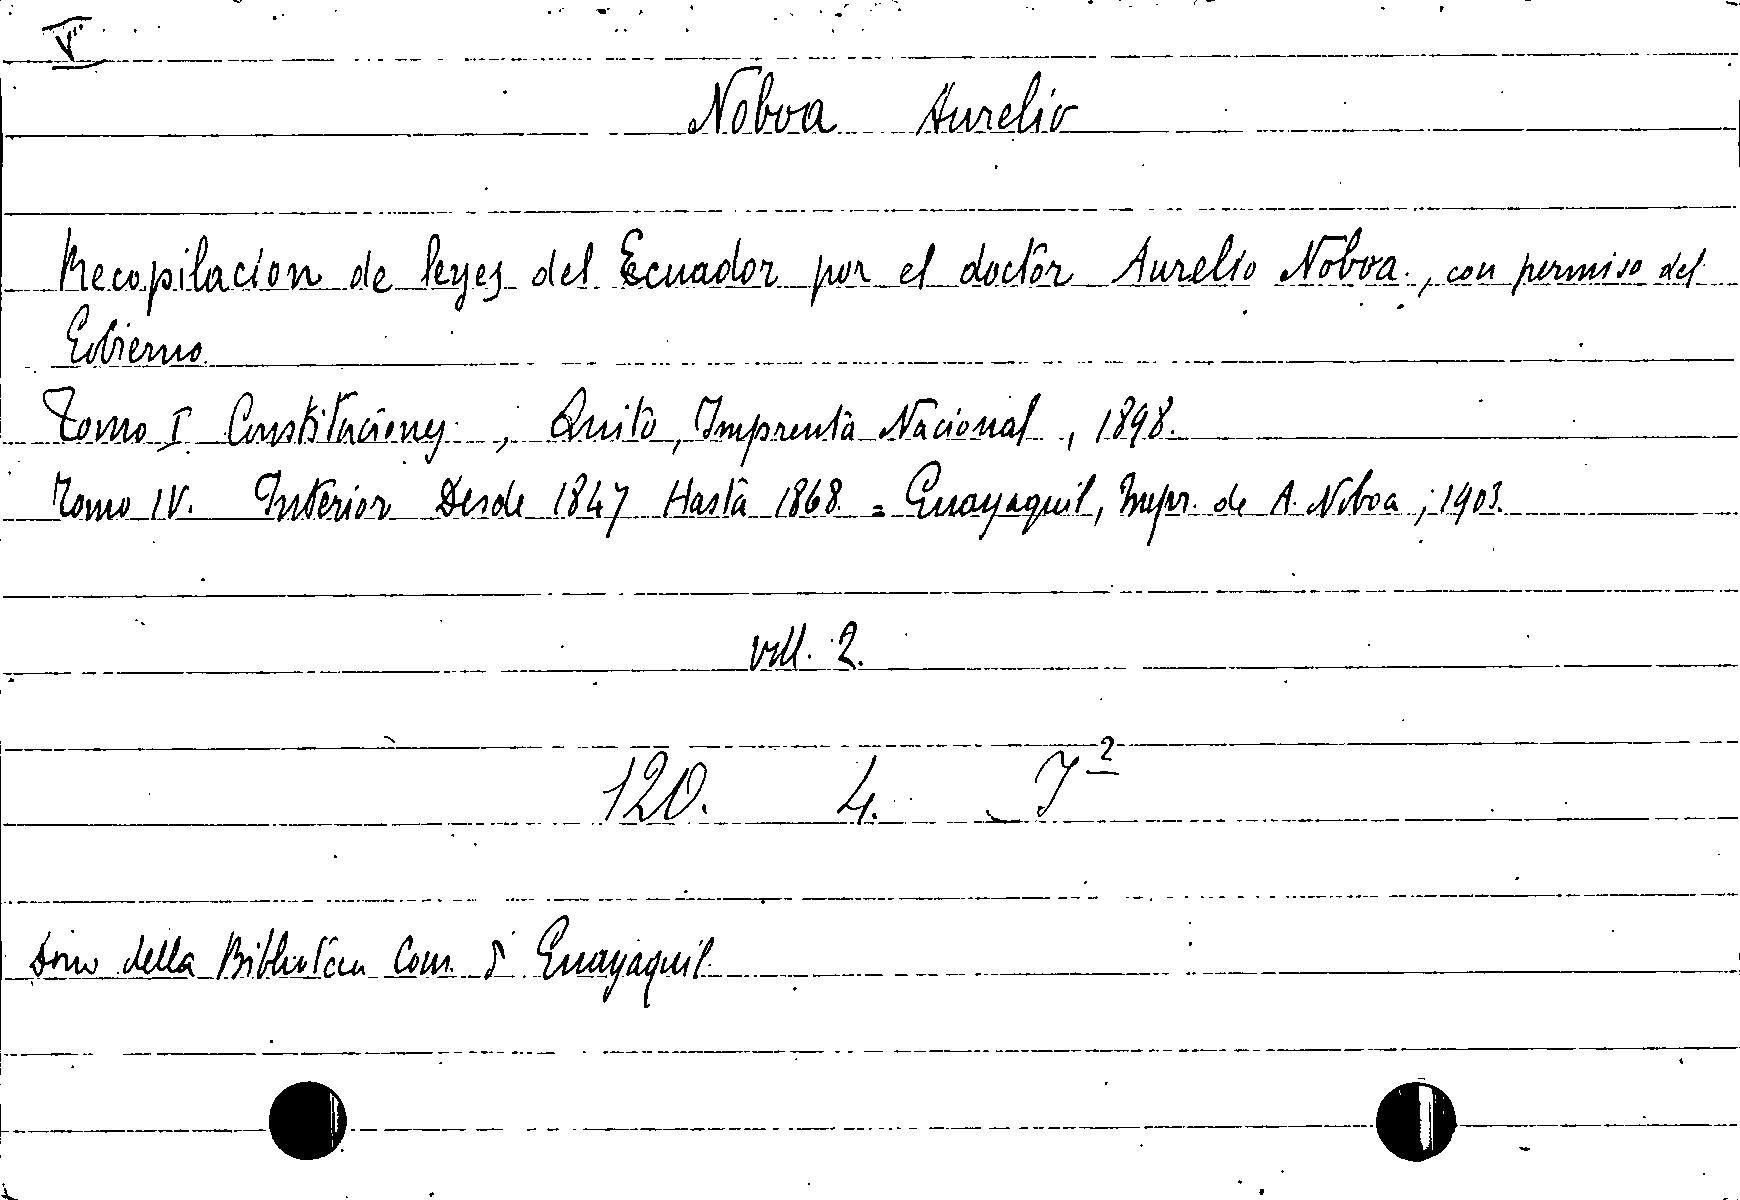 V
Noboa Aurelio
Recopilacion de leyes del Ecuador por el doctor Aurelio Noboa., con permiso del
Gobierno
Tomo I Constituciones ; Quito, Imprenta Nacional, 1898.
Tomo IV. Interior Desde 1847 Hasta 1868 = Guayaquil, Impr. de A. Noboa, 1903.
voll. 2.
120. 4. J²
Dono della Biblioteca Com. di Guayaquil